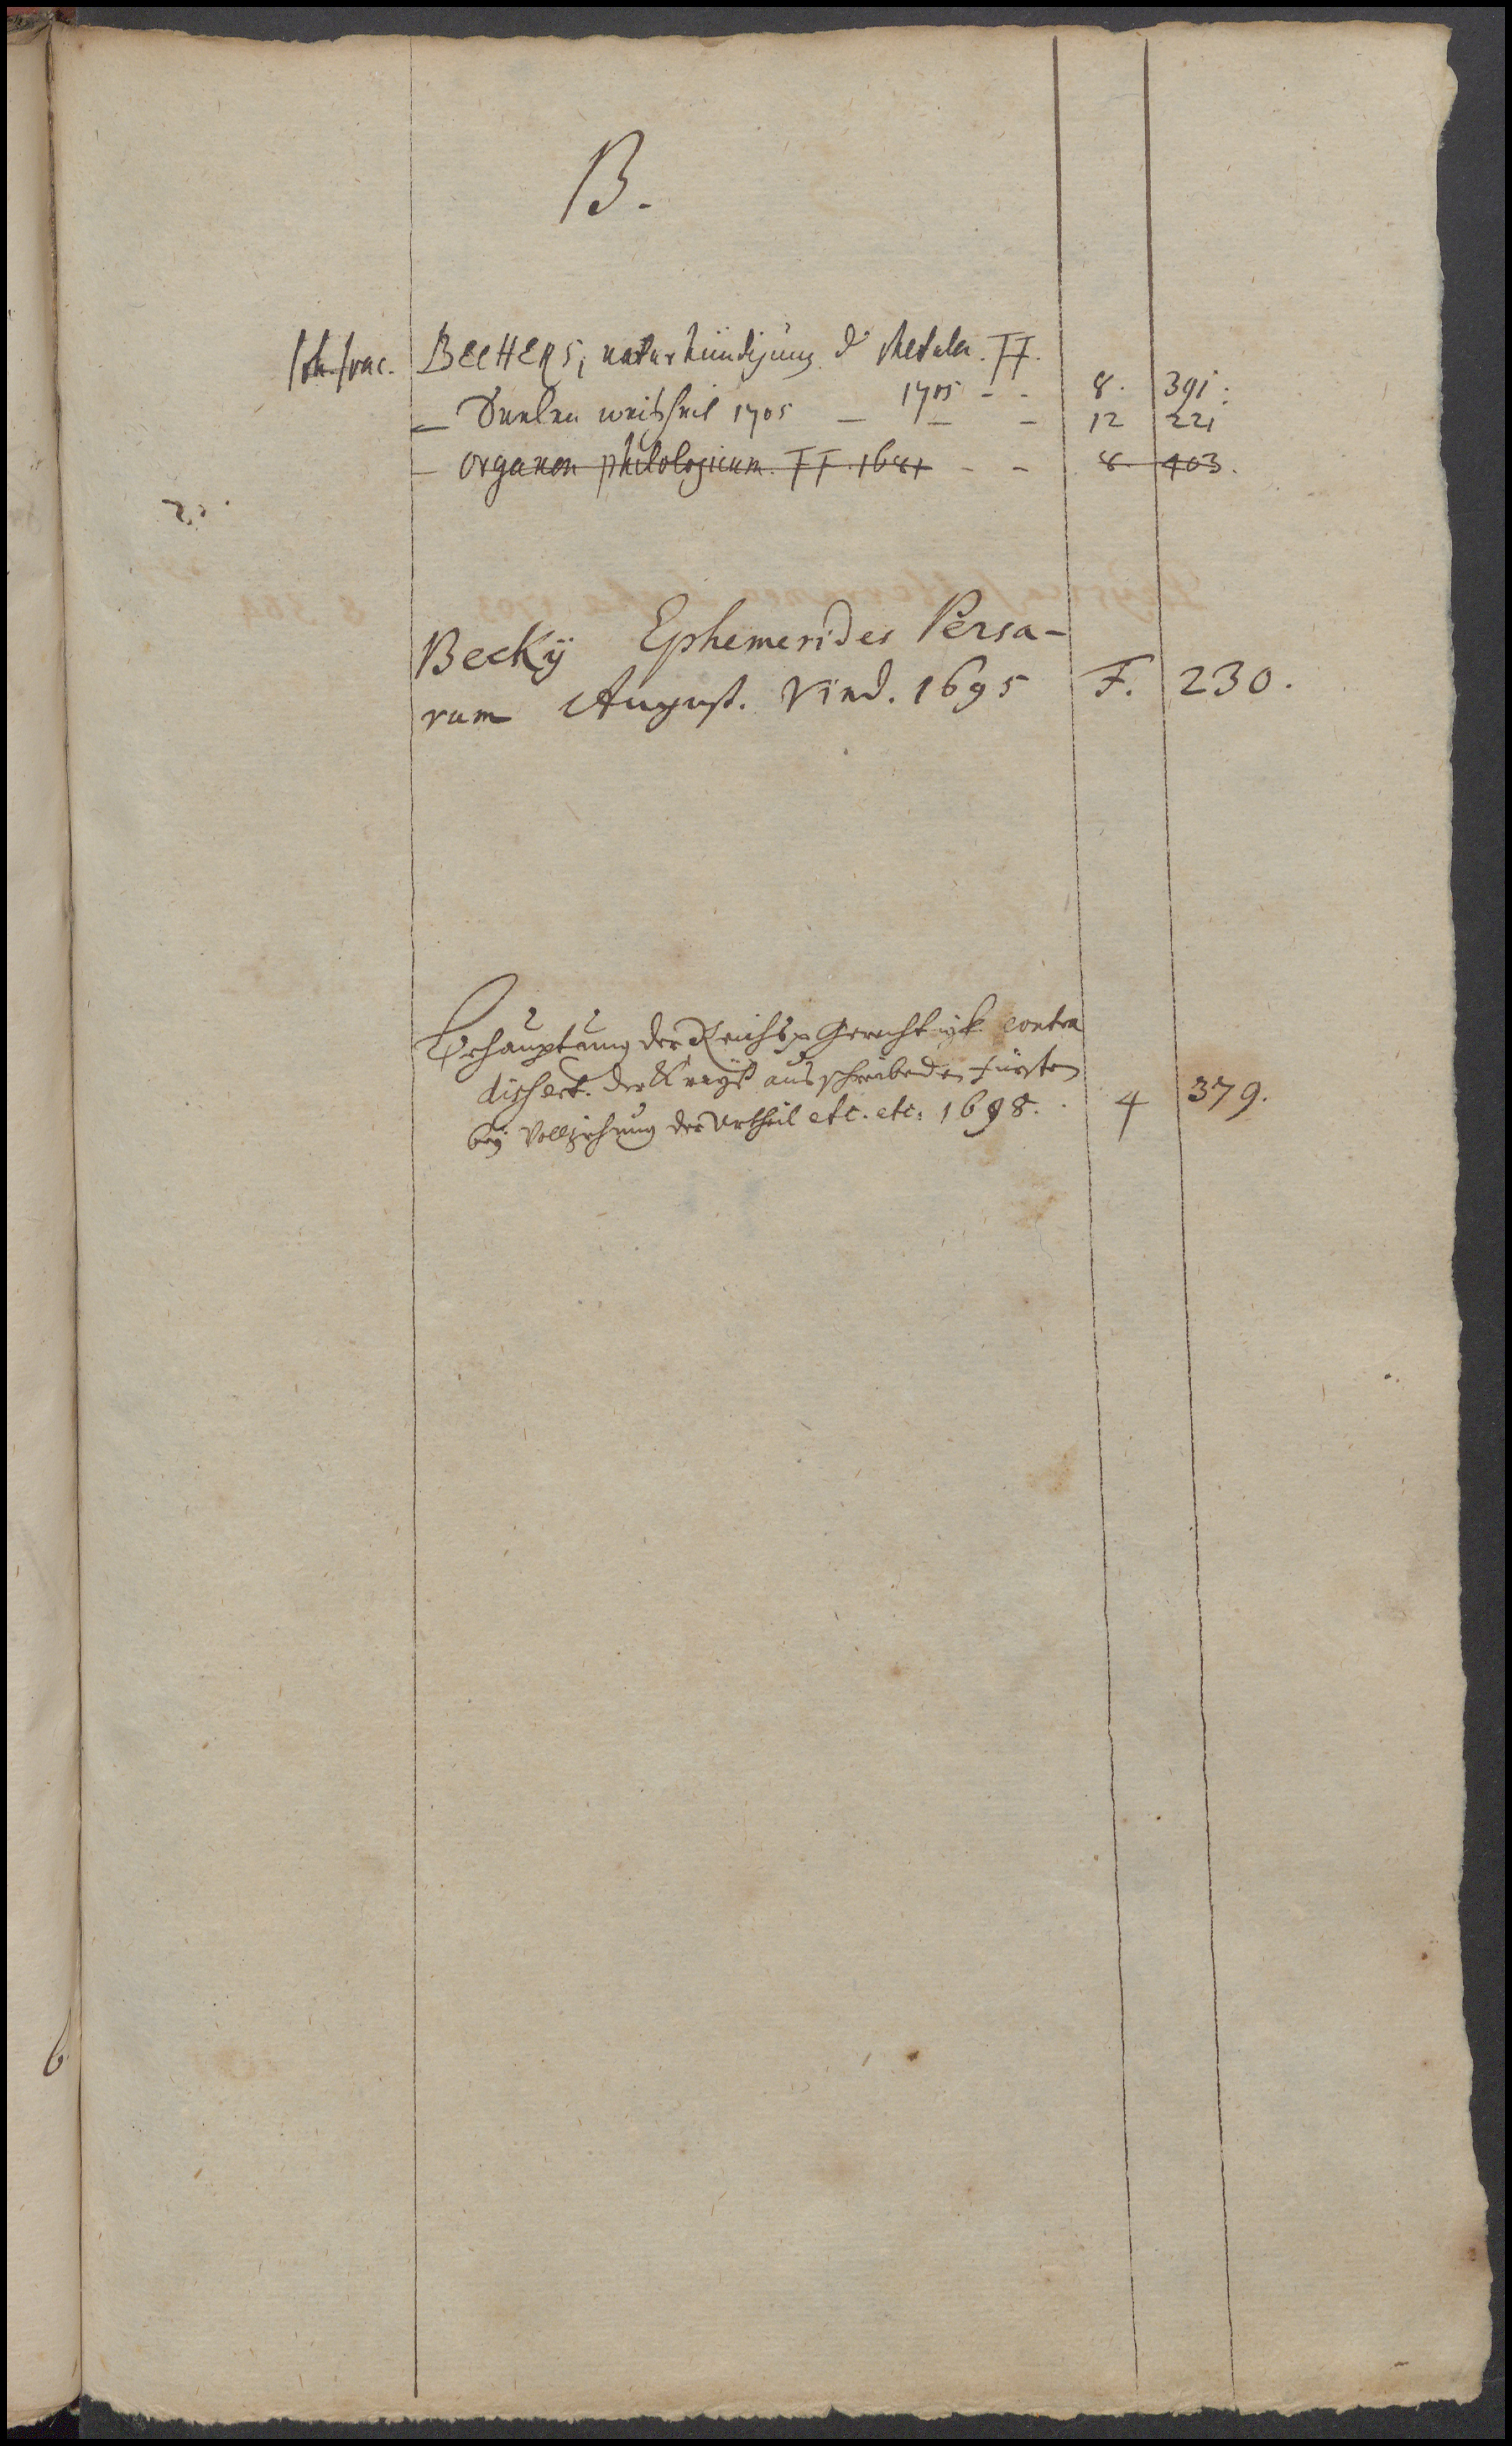 B.
Joh. Joac. BECHERS, naturkündigung d' Metalen. FF.
1705 - - 8. 391.
— weisheit 1705 — — - 12 221
— organon philologicum. FF. 1681 - - 8. 403.
Beckÿ Ephemerides Persa-
rum August. Vind. 1695 F. 230.
Behauptung der Reichs Gerechtigk. contra
dissert. der Krayß ausschreibenden Fürsten
beÿ Vollziehung der Urtheil etc. etc. 1698. . 4 379.